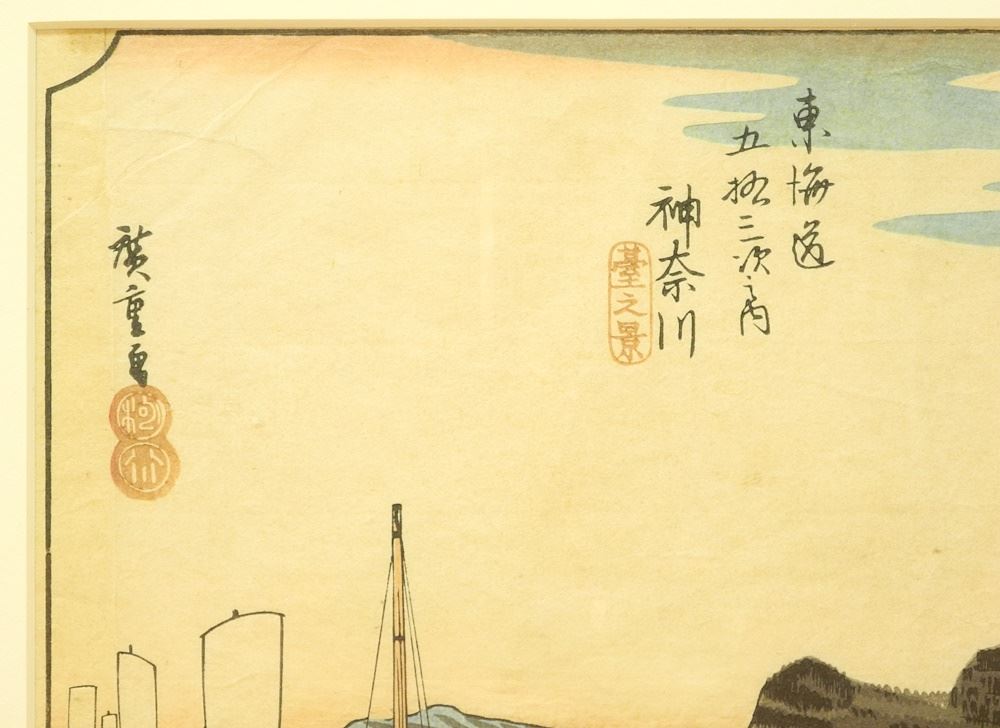 東海道
五拾三次之内
神奈川
臺之景
廣重画
竹内